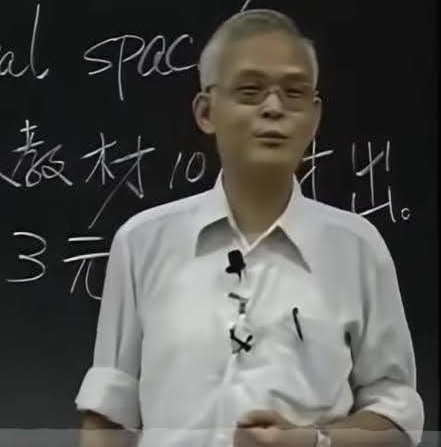 al spac
教材10 出。
3元